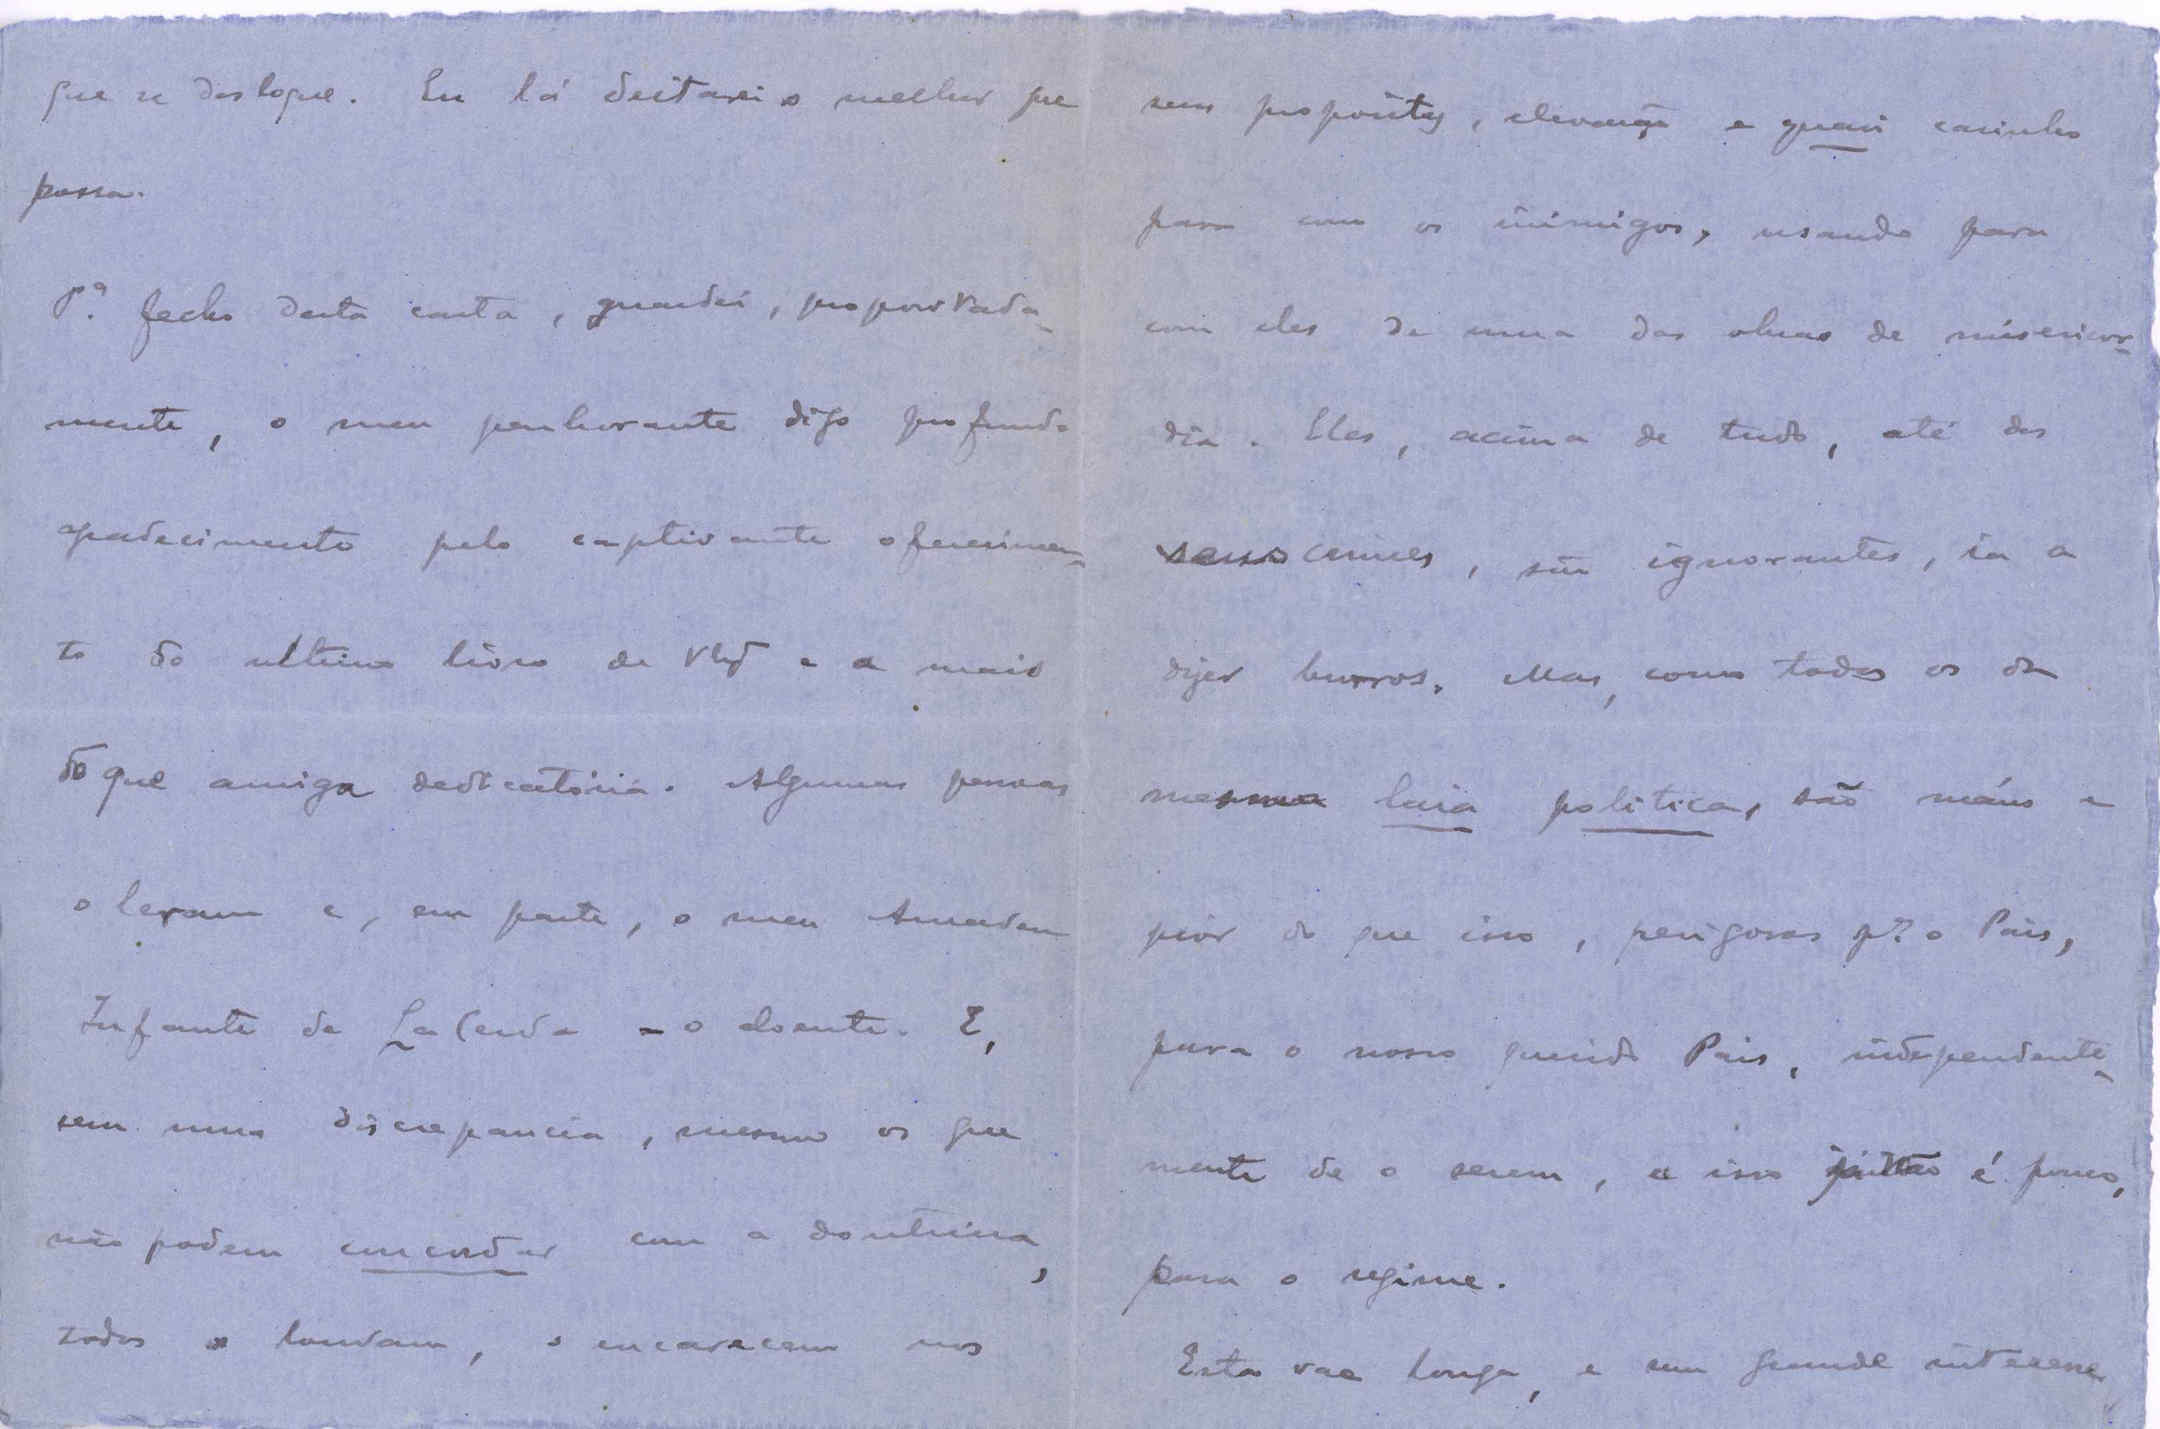 que se desloque. Eu lá deitarei o melhor que
possa.
Pª. fecho desta carta, guardei, propositada-
mente, o meu penhorante digo profundo
agradecimento pelo captivante oferecimen-
to do ultimo livro de e a mais
do que amiga dedicatória. Algumas pessoas
o leram e, em parte, o meu Amadeu
Infante de La Cerda - o doente. E,
sem uma discrepancia, mesmo os que
não podem concordar com a doutrina,
todos o louvam, o encarecem nos
seus propósitos, elevação e quasi carinho
para com os inimigos, usando para
com eles de uma das obras de misericor-
dia. Eles, acima de tudo, até dos
seus crimes, são ignorantes, ia a
dizer burros. Mas, como todos os da
mesma laia politica, são máus e
pior do que isso, perigosos pª. o Pais,
para o nosso querido Pais, independente-
mente de o serem, e isso é pouco,
para o regime.
Esta vae longa, e sem grande interesse